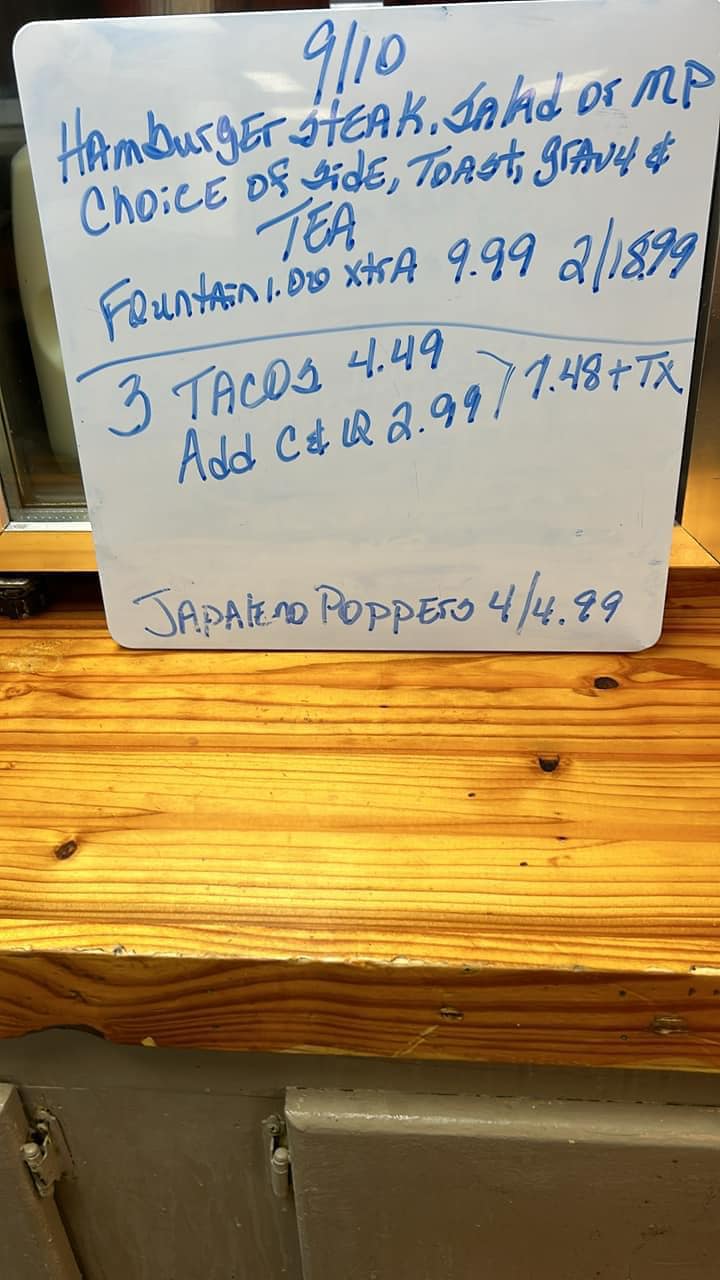 9/10
HAmburgEr STEAK, SAlAd Or MP
ChoiCE OF SidE, TOAst, grAvy &
TEA
FOuntAin 1.00 xtrA 9.99 2/18.99
3 TACOS 4.49
Add C& Q 2.99 > 7.48 + TX
JAPAlEno POPPErs 4/4.99